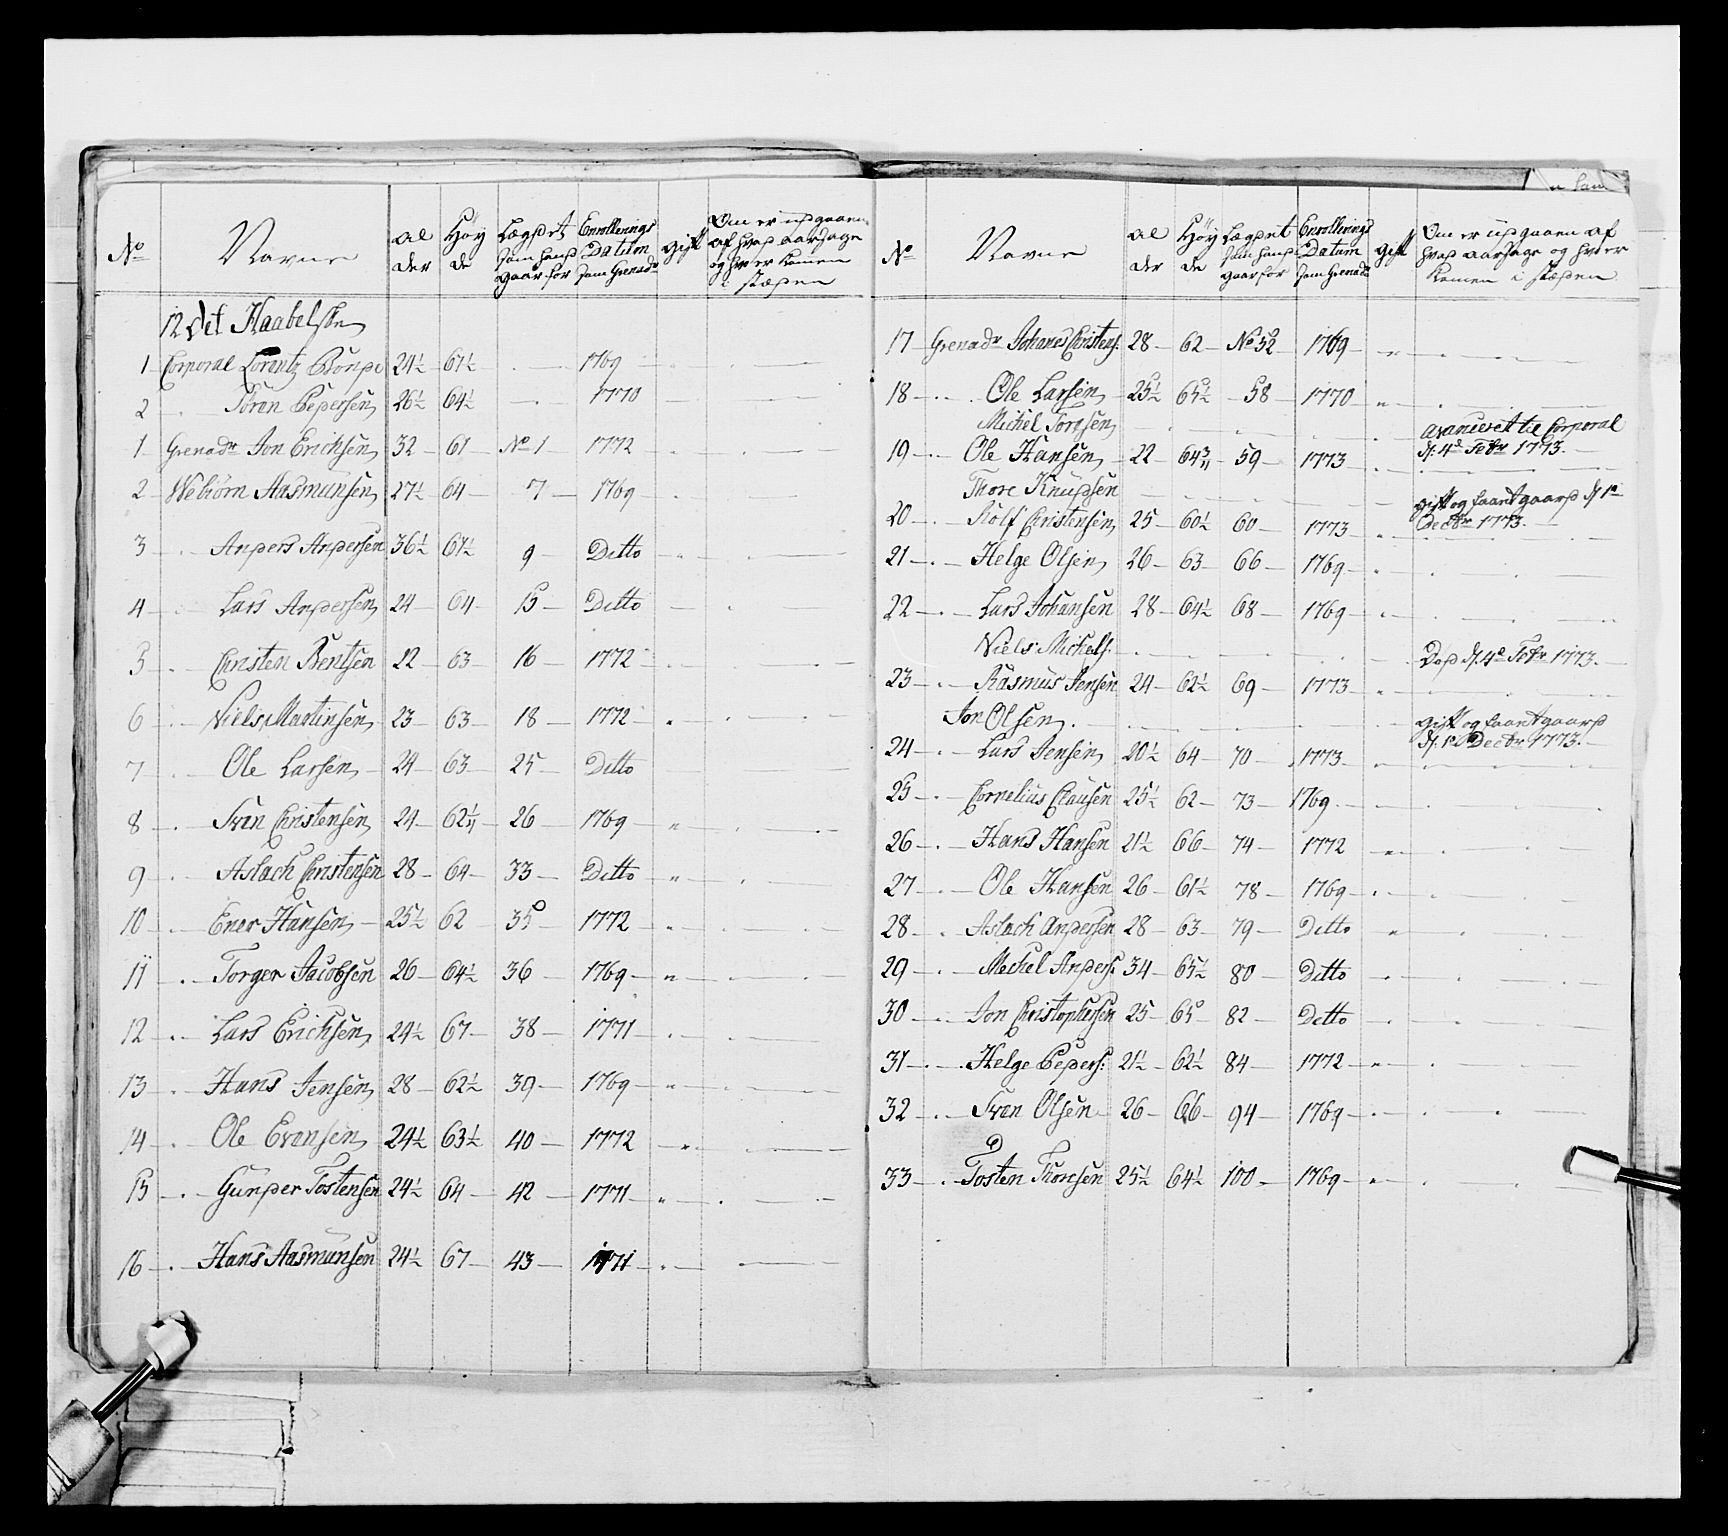 No Navne Al der Høy de Lægdet som hand gaar for Enrollerings Datum som Grenadr Gift Om er udgaaen af hvad aarsage og hvo er komen i stæden
12 det Haabelske
1 Corporal Lorentz 24½ 67½ 1769
2 Søren Pedersen 26½ 64½ 1770
1 Grenadr Jon Erichsen 32 61 No 1 1772
2 Wehiørn Aasmunsen 27½ 64 7 1769
3 Anders Andersen 36½ 61½ 9 Ditto
4 Lars Andersen 24 64 15 Ditto
5 Christen Bentsen 22 63 16 1772
6 Niels Martinsen 23 63 18 1772
7 Ole Larsen 24 63 25 Ditto
8 Sven Christensen 24 62½ 26 1769
9 Aslach Christensen 28 64 33 Ditto
10 Ener Hansen 25½ 62 35 1772
11 Torger Jacobsen 26 64½ 36 1769
12 Lars Erichsen 24½ 67 38 1771
13 Hans Jensen 28 62½ 39 1769
14 Ole Evensen 24½ 63½ 40 1772
15 Gunder Tostensen 24½ 64 42 1771
16 Hans Aasmunsen 24½ 67 43 1771
No Navne Al der Høy de Lægdet som hand gaar for Enrollerings Datum som Grenadr Gift Om er udgaaen af hvad aarsage og hvo er komen i stæden
17 Grenadr Johanes Christens: 28 62 No 52 1769
18 Ole Larsen 25½ 65½ 58 1770
Michel Toresen avanceret til Corporal
19 Ole Hansen 22 64¾ 59 1773 d: 4de Febr 1773.
Thore Knudsen gift og faaet gaard d 1te
20 Rolf Christensen 25 60½ 60 1773 Decbr 1773.
21 Helge Olsen 26 63 66 1769
22 Lars Johansen 28 64½ 68 1769
Niels Michels: Død d. 4de Febr 1773.
23 Rasmus Jensen 24 62½ 69 1773
Jon Olsen gift og faaet gaard
24 Lars Jensen 20½ 64 70 1773 d. 1te Decbr 1773.
25 Cornelius Clausen 25½ 62 73 1769
26 Hans Hansen 21½ 66 74 1772
27 Ole Hansen 26 61½ 78 1769
28 Aslach Andersen 28 63 79 Ditto
29 Mechel Anders: 34 65½ 80 Ditto
30 Jon Christophersen 25 65 82 Ditto
31 Helge Peders: 21½ 62½ 84 1772
32 Sven Olsen 26 66 94 1769
33 Tosten Thoresen 25½ 64½ 100 1769